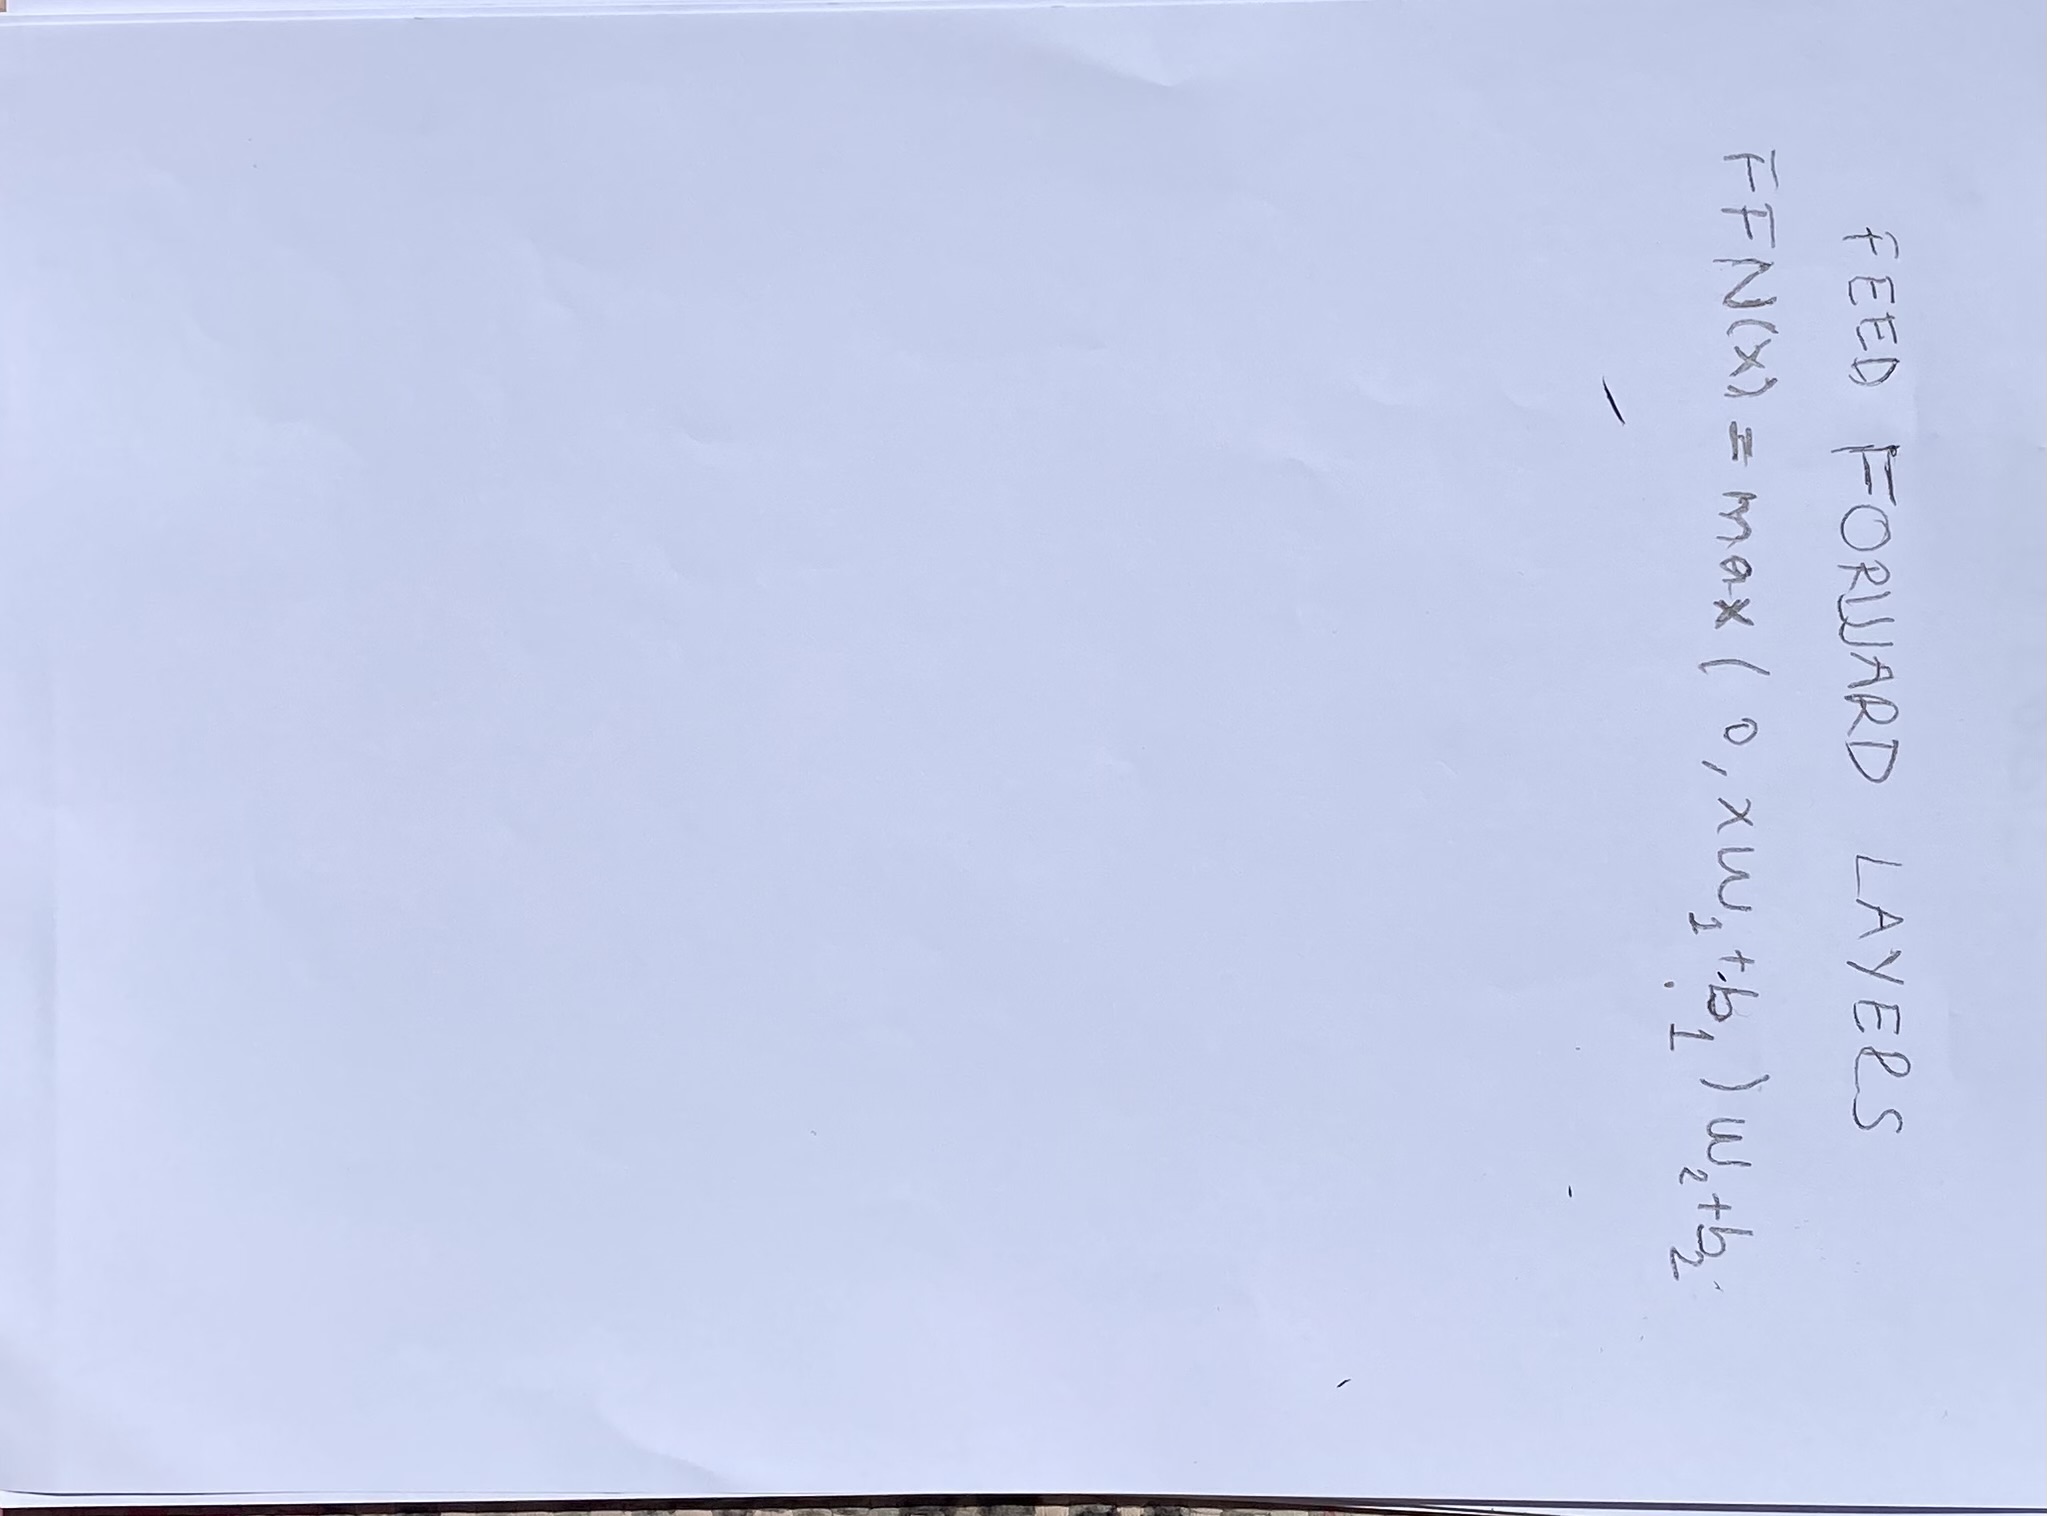 FEED FORWARD LAYERS
FFN(x) = max ( 0, xw₁ + b₁ ) w₂ + b₂